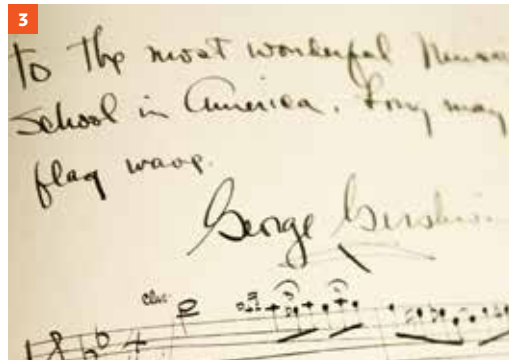 3
To the most wonderful Music
School in America. Long may
flag wave.
George Gershwin
Clar.